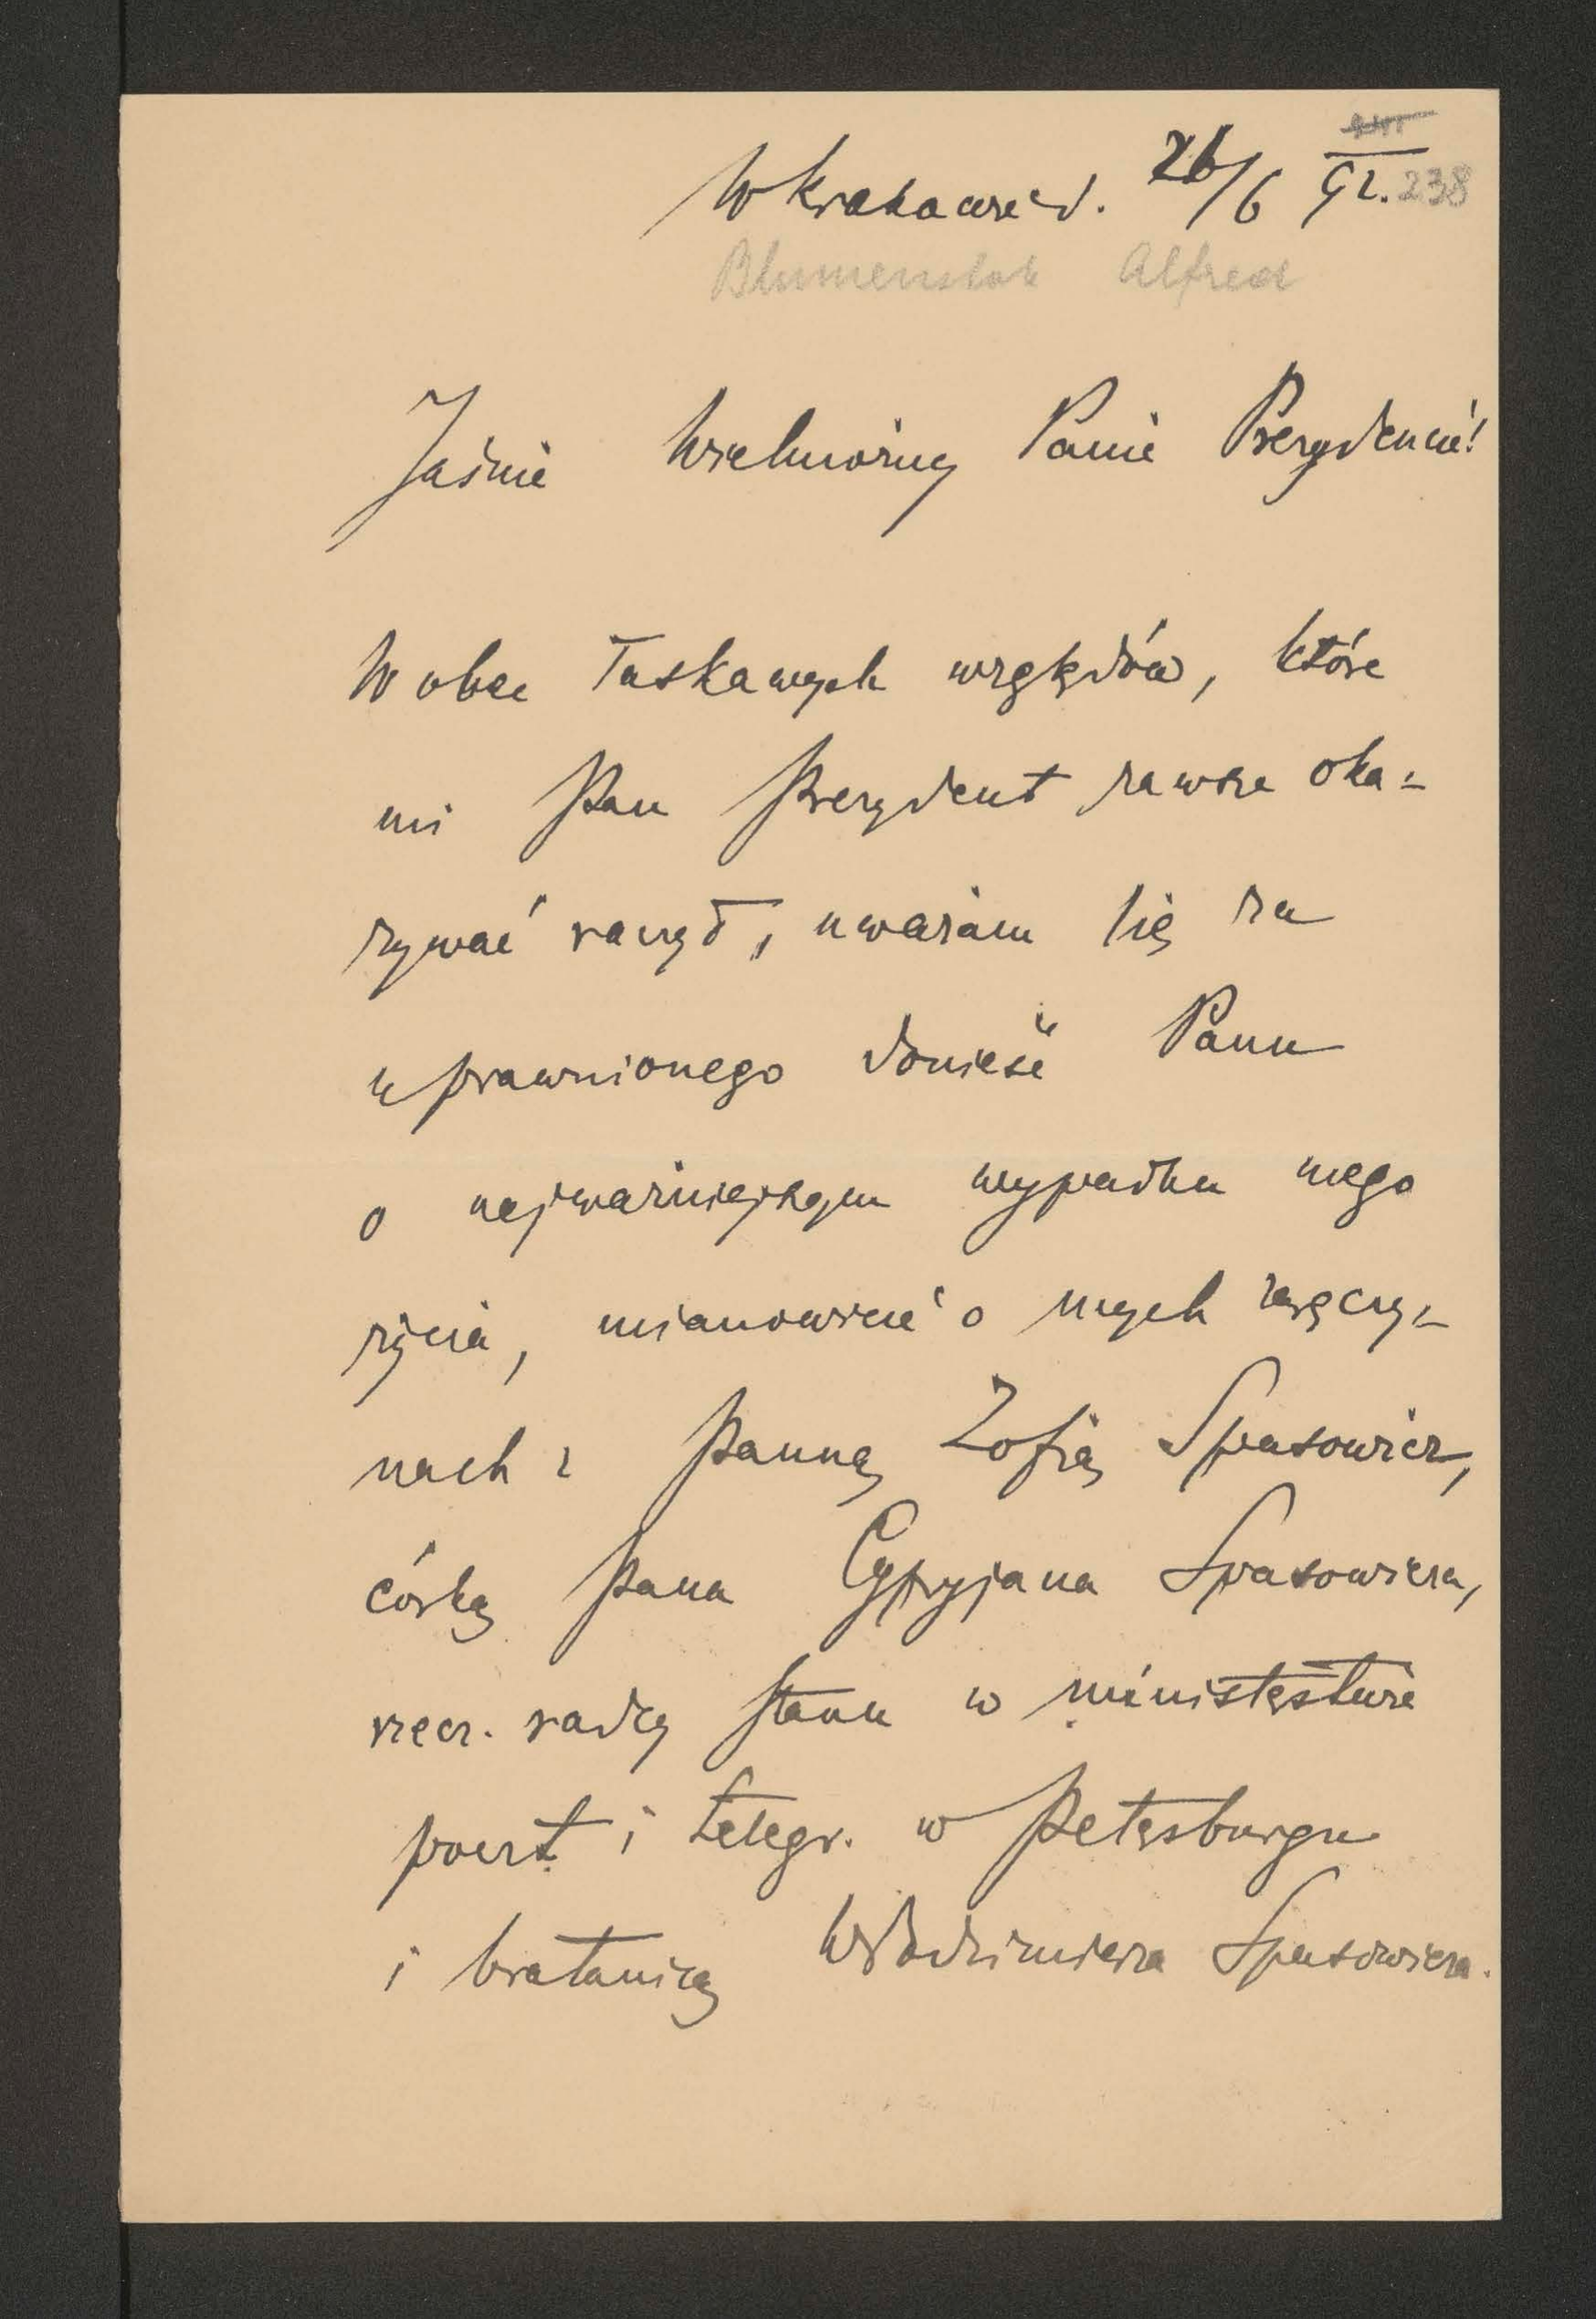 W Krakowie d. 26/6 92. 238
Blumenstok Alfred
Jaśnie Wielmożny Panie Prezydencie!
Wobec łaskawych względów, które
mi Pan Prezydent zawsze oka-
zywać raczył, uważam się za
uprawnionego donieść Panu
o najważniejszym wypadku mego
życia, mianowicie o mych zaręczy-
nach z Panną Zofią Spasowicz,
córką Pana Cypryjana Spasowicza,
rzecz. radcy stanu w ministerstwie
poczt i telegr. w Petersburgu
i bratanicą Włodzimierza Spasowicza.